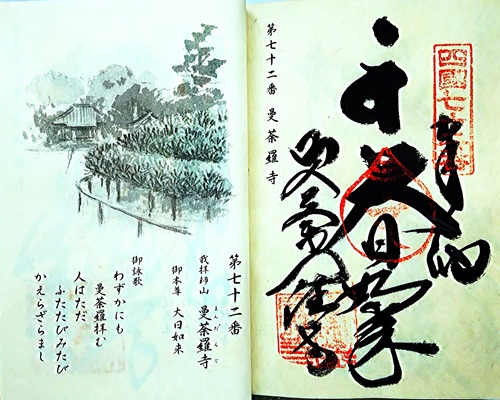 第七十二番 曼荼羅寺
奉納
大日如来
曼荼羅寺
四國七十二番
第七十二番
我拝師山 曼荼羅寺
まんだらじ
御本尊 大日如来
御詠歌
わずかにも
曼荼羅拝む
人はただ
ふたたびみたび
かえらざらまし